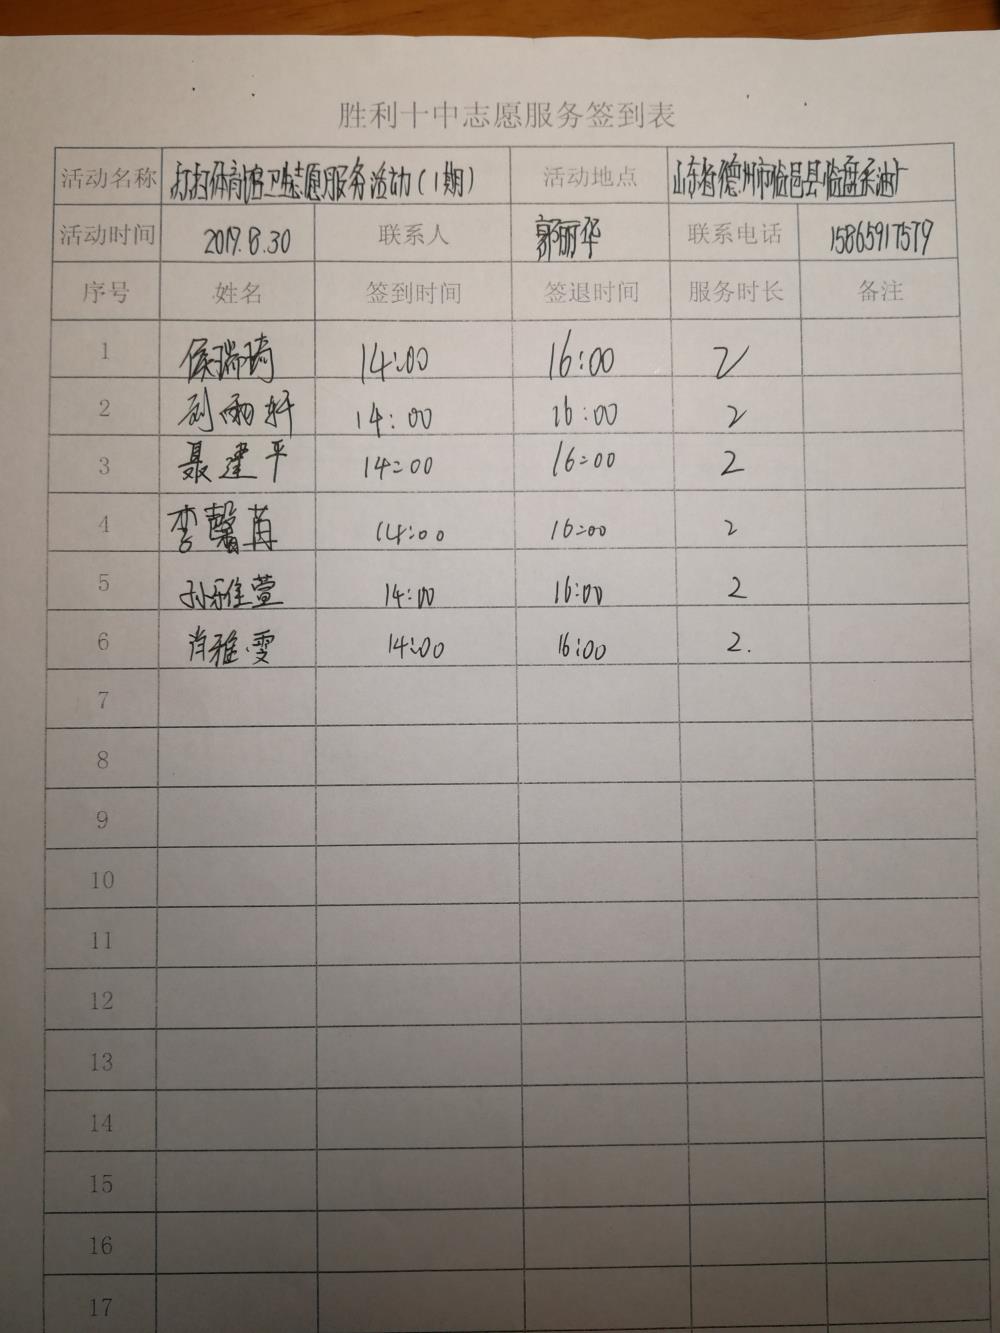 胜利十中志愿服务签到表
活动名称 打扫体育馆卫生志愿服务活动(1期) 活动地点 山东省德州市临邑县临盘采油厂
活动时间 2019.8.30 联系人 郭丽华 联系电话 15865917579
序号 姓名 签到时间 签退时间 服务时长 备注
1 侯瑞琦 14:00 16:00 2
2 刘雨轩 14:00 16:00 2
3 聂建平 14:00 16:00 2
4 李馨苒 14:00 16:00 2
5 孙雅萱 14:00 16:00 2
6 肖雅雯 14:00 16:00 2.
7
8
9
10
11
12
13
14
15
16
17